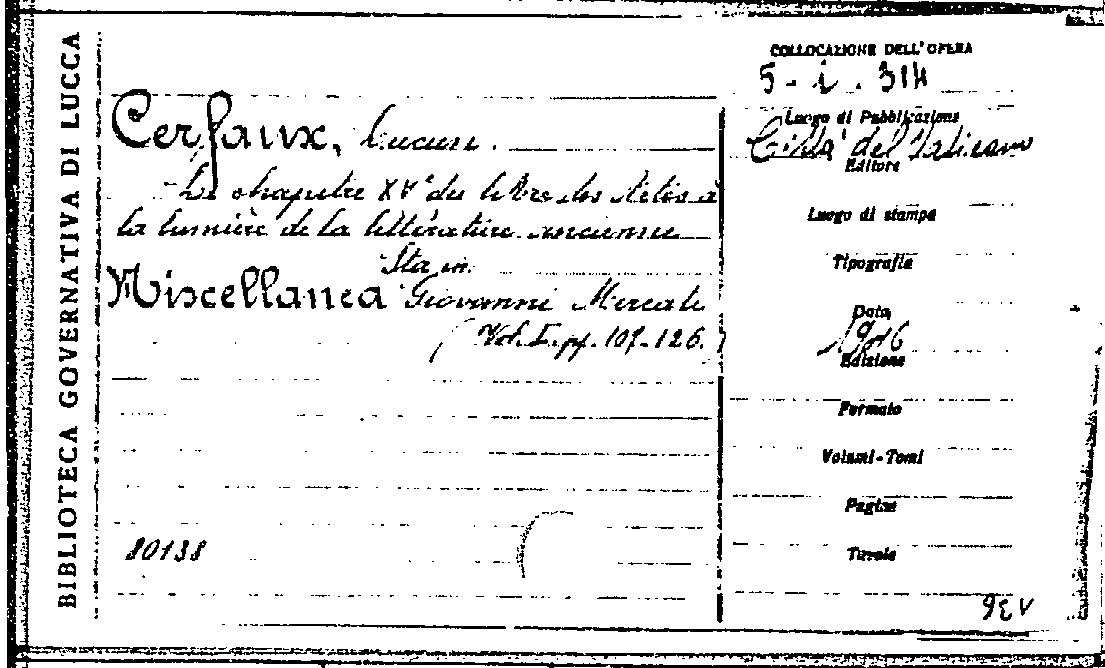 BIBLIOTECA GOVERNATIVA DI LUCCA
COLLOCAZIONE DELL'OPERA
5-i.314
Cerfaux, Lucien.
Le chapitre XVe du libre des Actes à
la lumière de la littérature ancienne
Sta in
Miscellanea Giovanni Mercati
Vol. I. pp. 107-126.
80138
Luogo di Pubblicazione
Città del Vaticano
Editore
Luogo di stampa
Tipografia
Data
Edizione
Formato
Volumi-Tomi
Pagine
Tavole